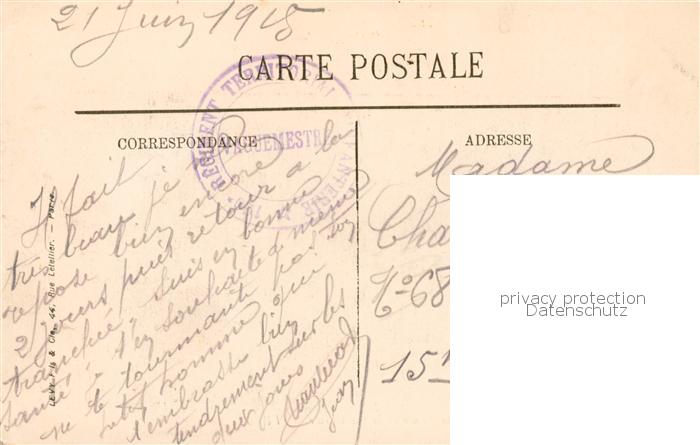 21 Juin 1915
CARTE POSTALE
CORRESPONDANCE
ADRESSE
RÉGIMENT TERRITORIAL
VAGUEMESTRE
Il fait
très beau je
repose bien encore
2 jours puis retour à la
tranchée, suis en bonne
santé, je t'en souhaite de même
ne te tourmente pas
petit homme qui
t'embrasse bien
tendrement sur les
deux joues
Madame
Cha
No 68
15
LEVY Fils & Cie, 44, Rue Letellier. — Paris
privacy protection
Datenschutz